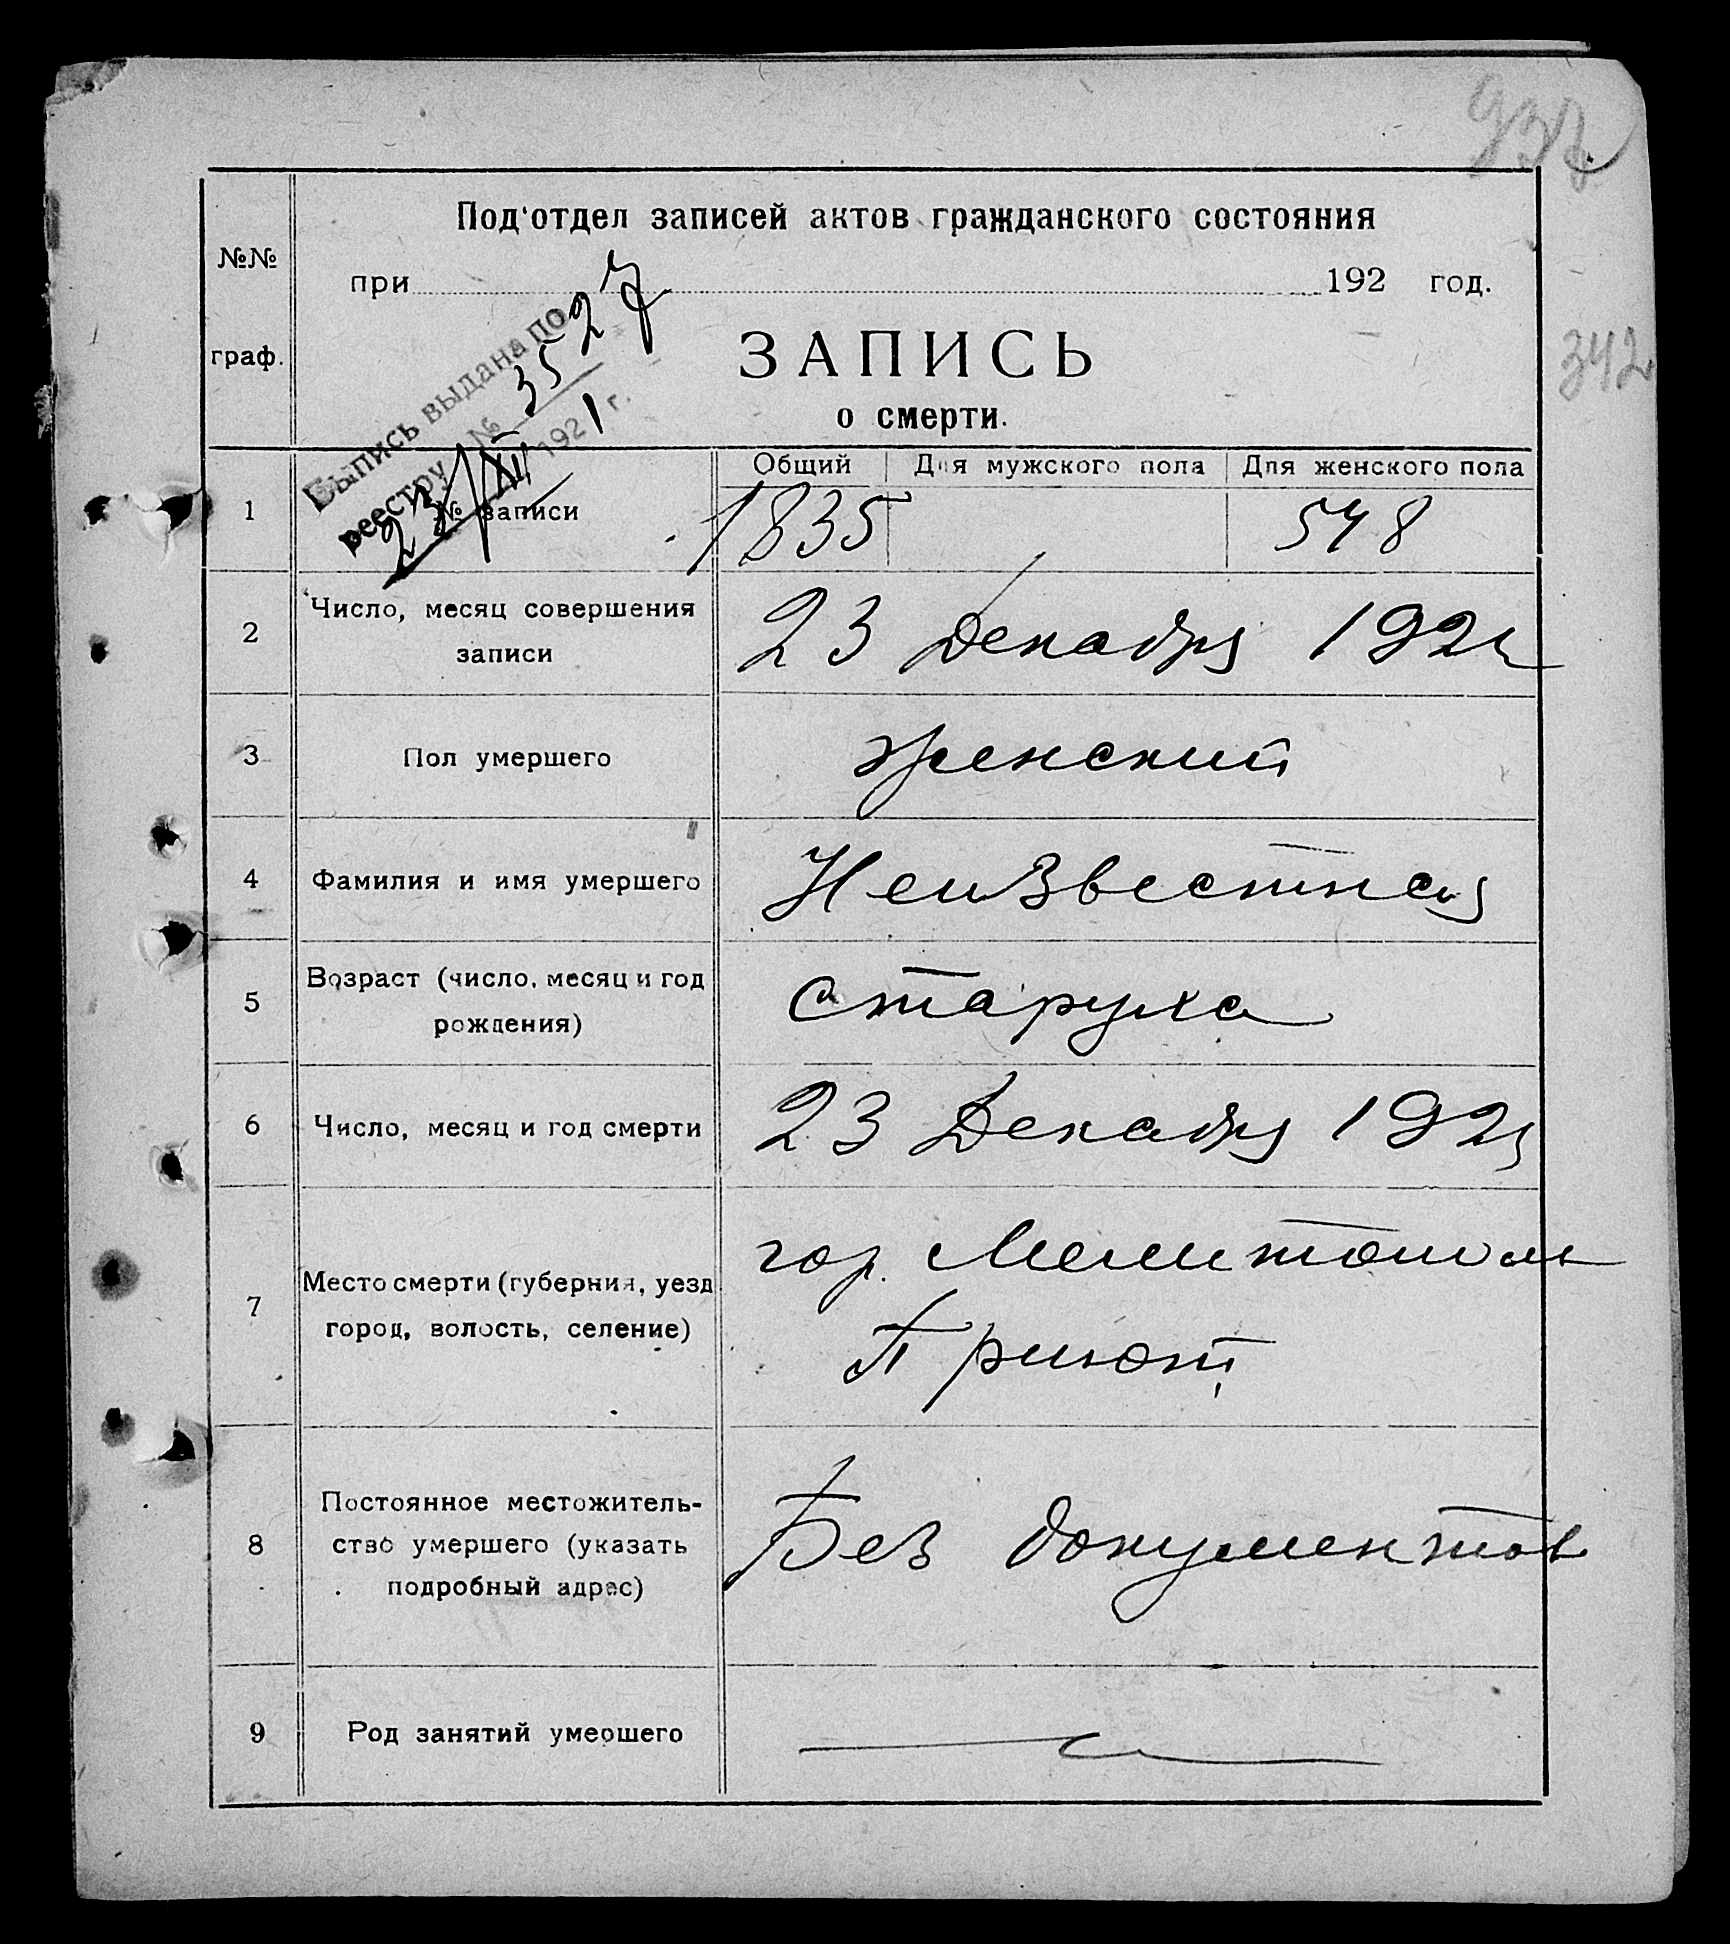 937
Под'отдел записей актов гражданского состояния
№№
при 192 год.
граф.
ЗАПИСЬ
о смерти.
342
Выпись выдана по
реестру № 3527
23/XII 1921 г.
Общий Для мужского пола Для женского пола
1 № записи 1835 548
2 Число, месяц совершения
записи
23 Декабря 1921
3 Пол умершего женский
4 Фамилия и имя умершего Неизвестная
5 Возраст (число, месяц и год
рождения)
старуха
6 Число, месяц и год смерти 23 Декабря 1921
7 Место смерти (губерния, уезд
город, волость, селение)
гор. Мелитополь
Приют
8 Постоянное местожитель-
ство умершего (указать
подробный адрес)
Без документов
9 Род занятий умершего